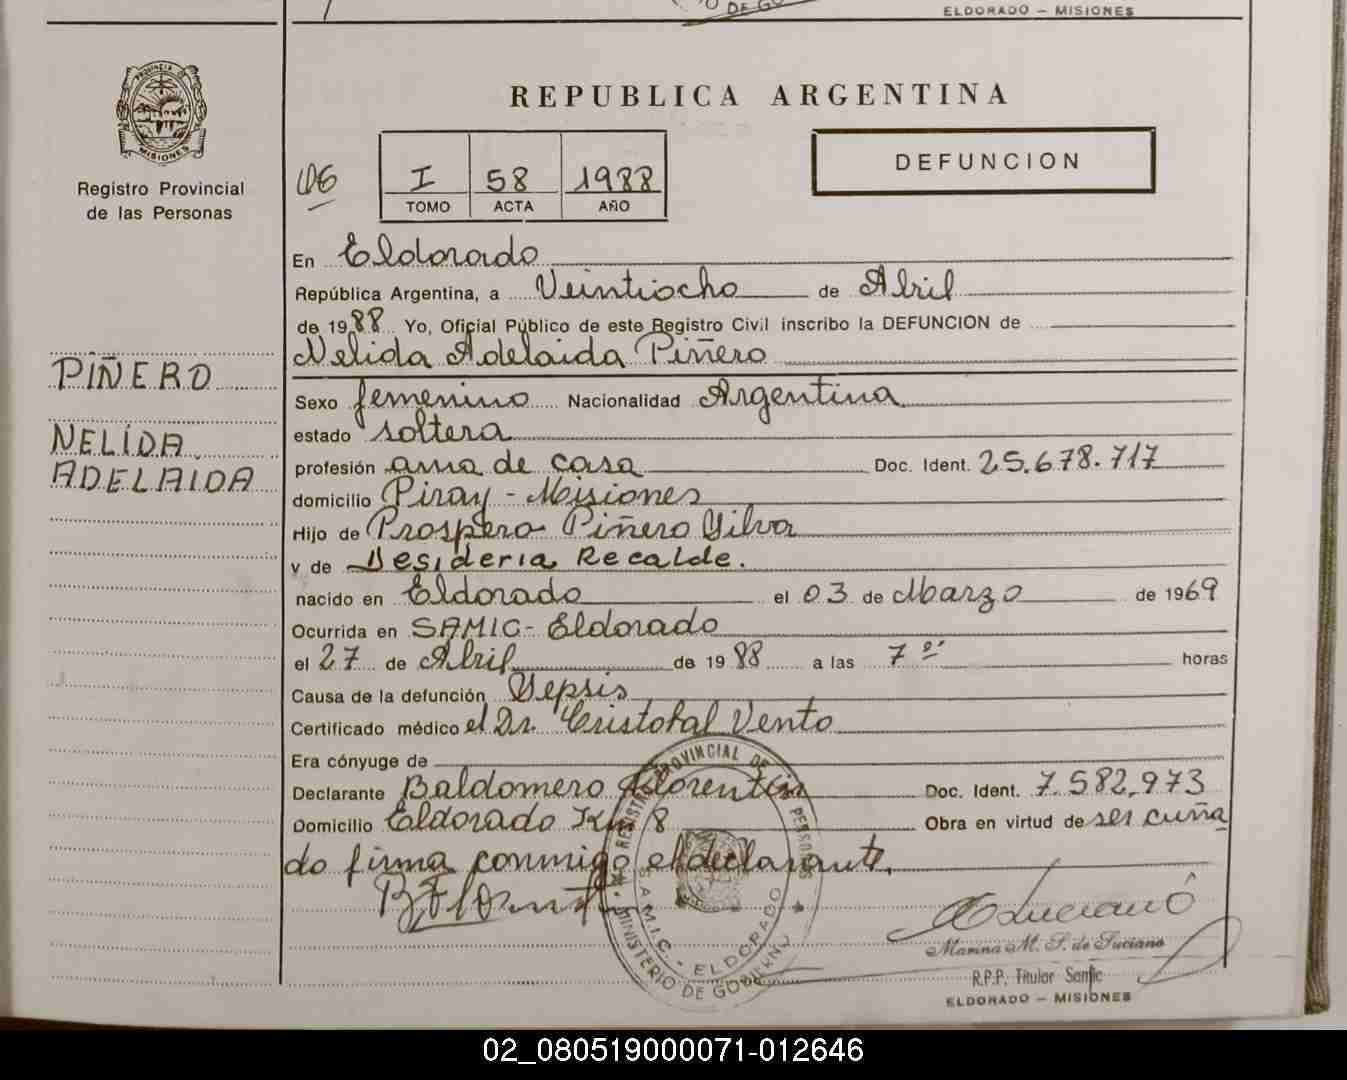 DE GO
ELDORADO — MISIONES
PROVINCIA DE
MISIONES
Registro Provincial
de las Personas
REPUBLICA ARGENTINA
I 58 1988
TOMO ACTA AÑO
DEFUNCION
En Eldorado
República Argentina, a Veintiocho de Abril
de 1988 Yo, Oficial Público de este Registro Civil inscribo la DEFUNCION de
Nelida Adelaida Piñero
PIÑERO
NELIDA
ADELAIDA
Sexo femenino Nacionalidad Argentina
estado soltera
profesión ama de casa Doc. Ident. 25.678.717
domicilio Piray - Misiones
Hijo de Prospero Piñero Silva
y de Desideria Recalde.
nacido en Eldorado el 03 de Marzo de 1969
Ocurrida en SAMIC - Eldorado
el 27 de Abril de 1988 a las 7 horas
Causa de la defunción Sepsis
Certificado médico el Dr. Cristobal Vento
Era cónyuge de
Declarante Baldomero Florentin Doc. Ident. 7.582.973
Domicilio Eldorado Km 8 Obra en virtud de ser cuña
do firma conmigo el declarante.
REGISTRO PROVINCIAL DE LAS PERSONAS
S.A.M.I.C. - ELDORADO
MINISTERIO DE GOBIERNO
Marina M. S. de Luciano
R.P.P. Titular Samic
ELDORADO — MISIONES
02_080519000071-012646